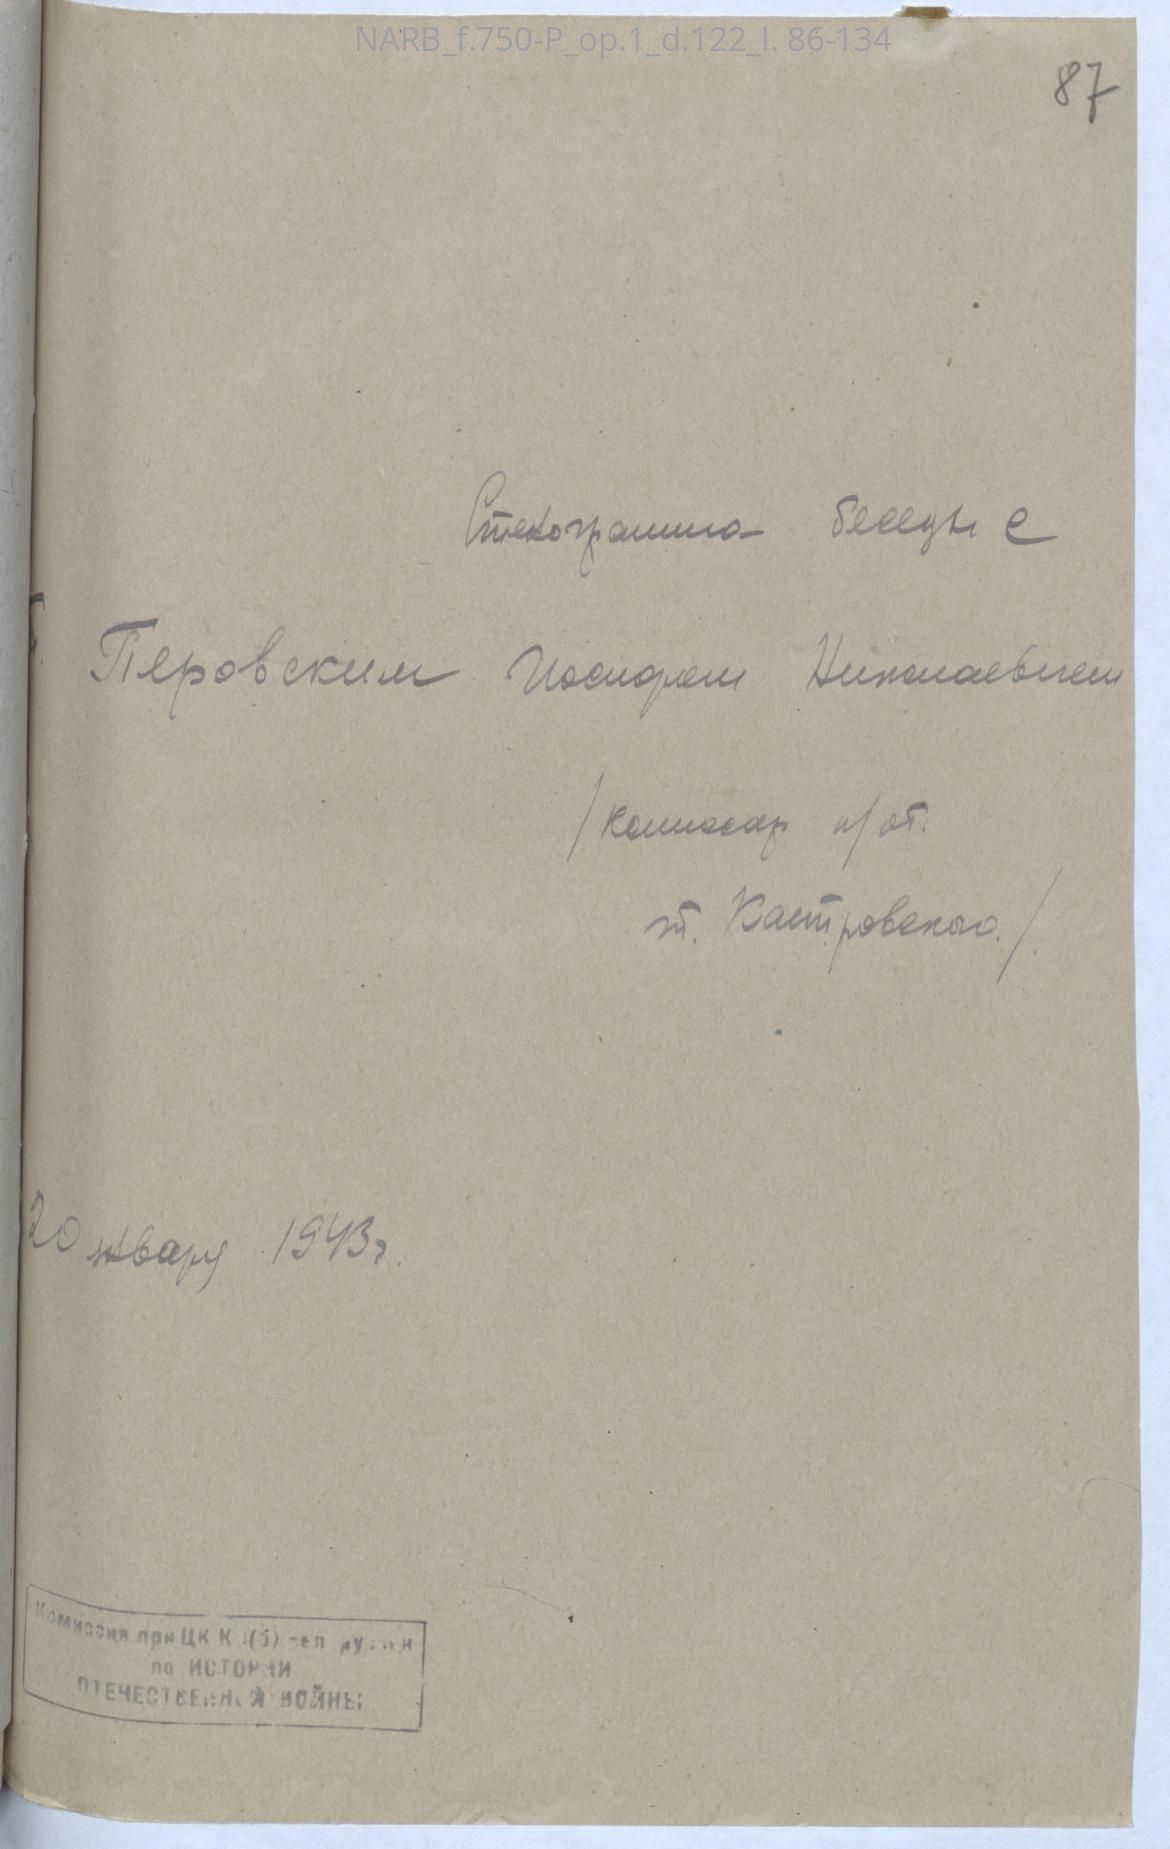 NARB_f.750-P_op.1_d.122_l. 86-134
87
Стенограмма беседы с
т. Перовским Иосифом Николаевичем
/комиссар п/от.
т. Кастровского./
20 января 1943 г.
Комиссия при ЦК К (б)
по ИСТОРИИ
ОТЕЧЕСТВЕННОЙ ВОЙНЫ